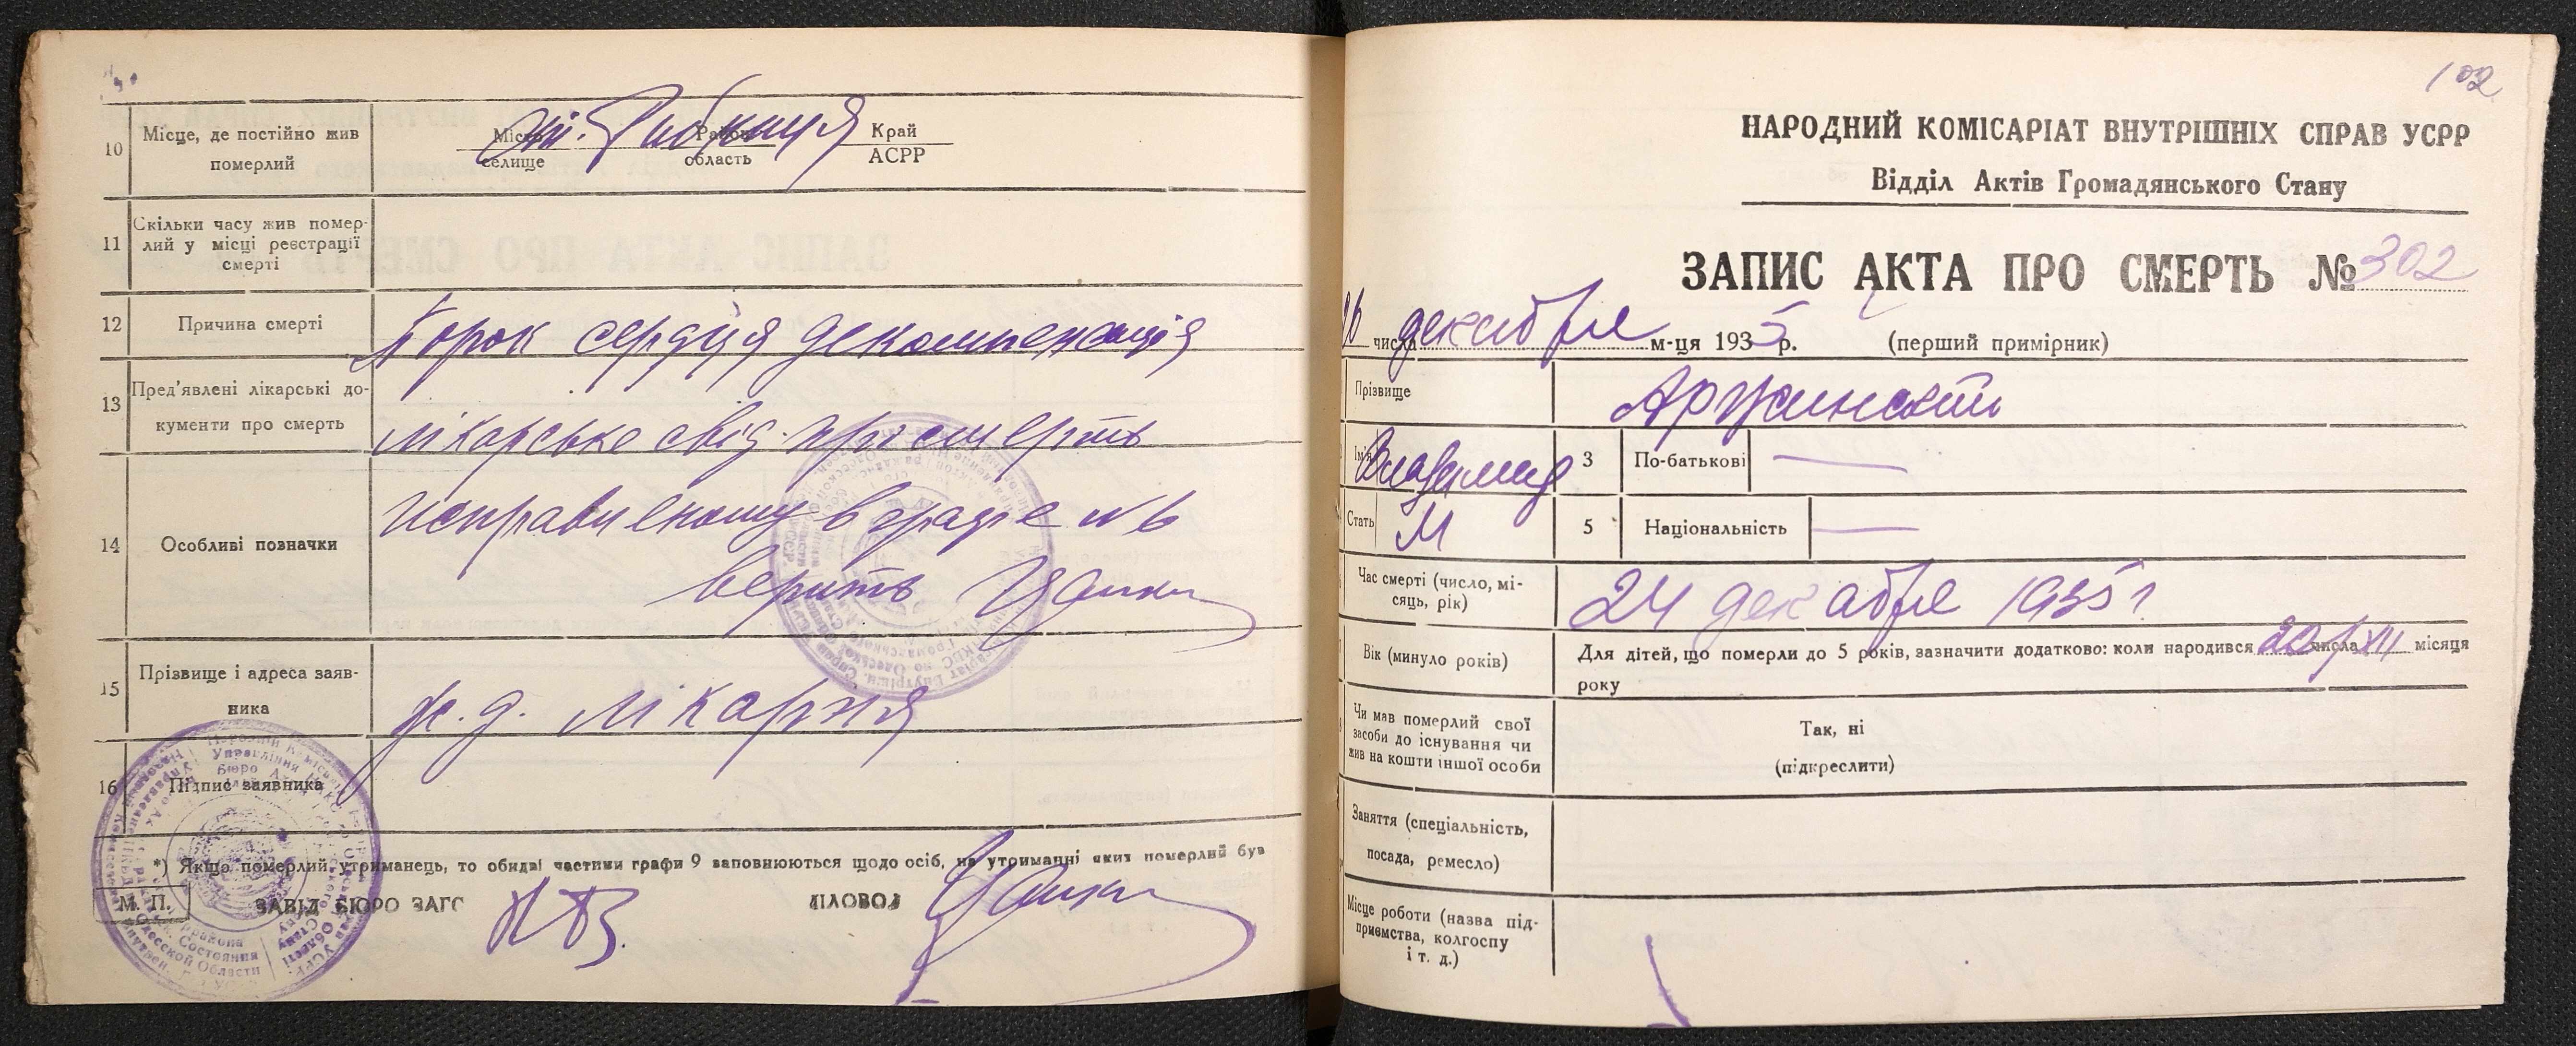 10
Місце, де постійно жив
померлий
Місто
селище
Район
область
Край
АСРР
ст. Рибниця
11
Скільки часу жив помер-
лий у місці реєстрації
смерті
12
Причина смерті
Порок сердця декомпенсація
13
Пред'явлені лікарські до-
кументи про смерть
лікарське свід. про смерть
14
Особливі позначки
исправленому в графе №6
верить
15
Прізвище і адреса заяв-
ника
ж. д. лікарня
16
Підпис заявника
*) Якщо померлий, утриманець, то обидві частини графи 9 заповнюються щодо осіб, на утриманні яких померлий був
М. П.
ЗАВІД БЮРО ЗАГС
ДІЛОВОД
102
НАРОДНИЙ КОМІСАРІАТ ВНУТРІШНІХ СПРАВ УСРР
Відділ Актів Громадянського Стану
ЗАПИС АКТА ПРО СМЕРТЬ № 302
числа декабря м-ця 1935 р. (перший примірник)
Прізвище
Ім'я
Владимир
3
По-батькові —
Стать
М
5
Національність —
Час смерті (число, мі-
сяць, рік)
24 декабря 1935 г
Вік (минуло років)
Для дітей, що померли до 5 років, зазначити додатково: коли народився 20 числа XII місяця
року
Чи мав померлий свої
засоби до існування чи
жив на кошти іншої особи
Так, ні
(підкреслити)
Заняття (спеціальність,
посада, ремесло)
Місце роботи (назва під-
приємства, колгоспу
і т. д.)